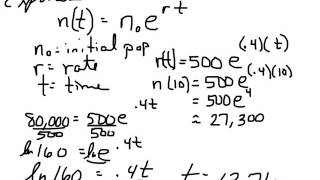 n(t) = n₀e^rt
n₀ = initial pop
r = rate
t = time
n(t) = 500e^(.4)(t)
n(10) = 500e^(.4)(10)
= 500e^4
≈ 27,300
80,000/500 = 500e^.4t/500
ln 160 = ln e^.4t
ln 160 = .4t